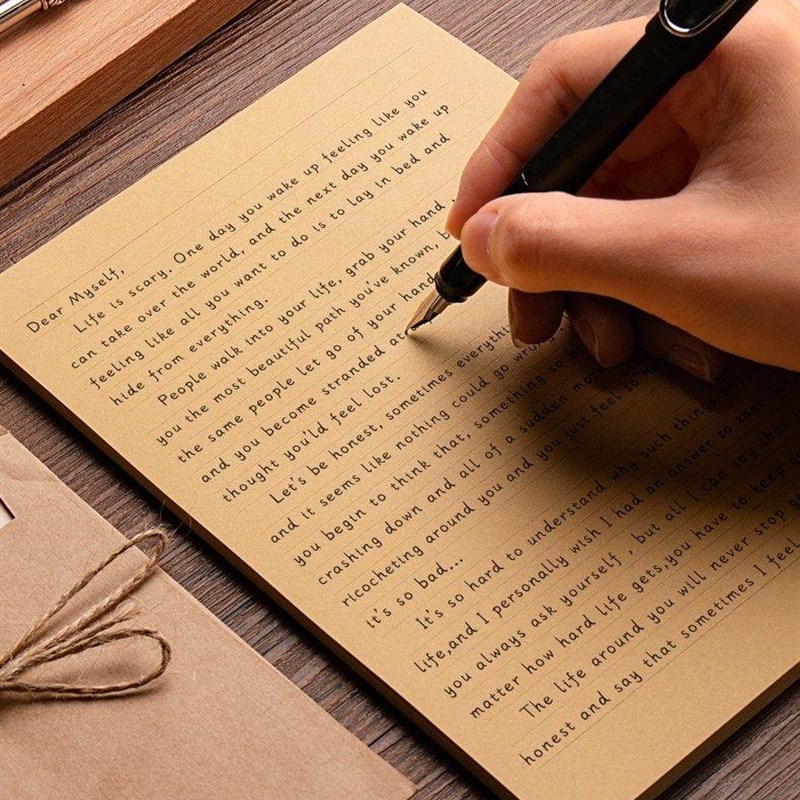 Dear Myself,
Life is scary. One day you wake up feeling like you
can take over the world, and the next day you wake up
feeling like all you want to do is to lay in bed and
hide from everything.
People walk into your life, grab your hand
you the most beautiful path you've known,
the same people let go of your hand
and you become stranded at
thought you'ld feel lost.
Let's be honest, sometimes
and it seems like nothing could go
you begin to think that, something so
crashing down and all of a sudden
ricocheting around you and you just feel so
it's so bad...
It's so hard to understand why such things
life,and I personally wish I had an answer to that
you always ask yourself , but all I can say
matter how hard life gets,you have to keep
The life around you will never stop
honest and say that sometimes I feel